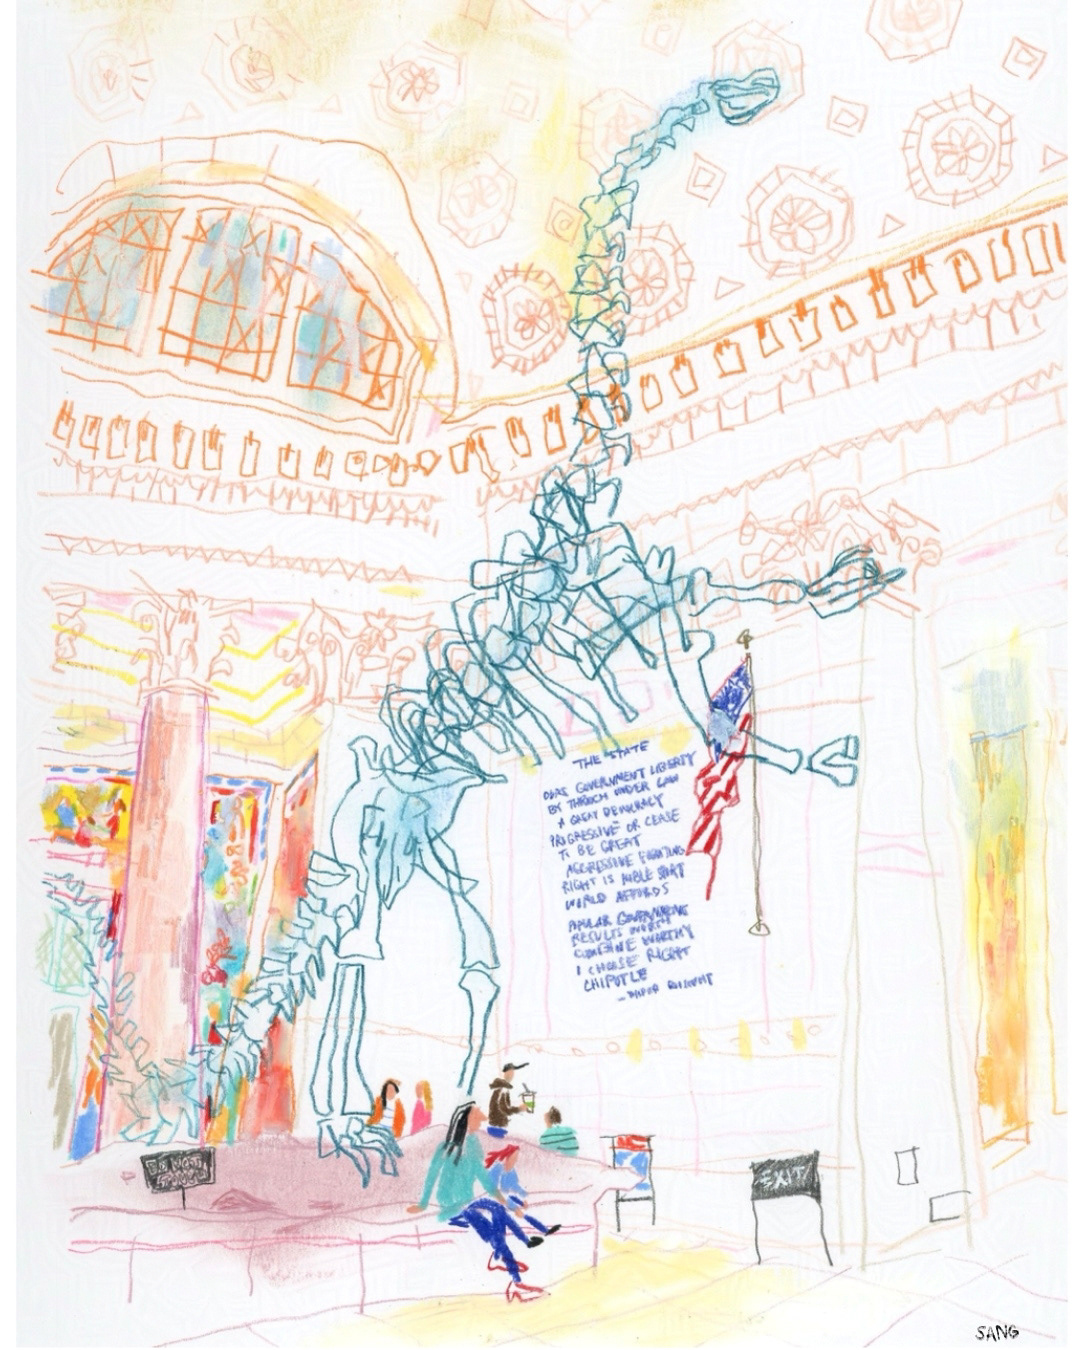 THE STATE
GOVERNMENT LIBERTY
BY THROUGH UNDER LAW
A GREAT DEMOCRACY
PROGRESSIVE OR CEASE
TO BE GREAT
AGGRESSIVE FIGHTING
RIGHT IS NOBLE SPORT
WORLD AFFORDS
POPULAR GOVERNMENT
RESULTS WORTH
COMBINE WORTHY
I CHOOSE RIGHT
CHIPOTLE
DO NOT
EXIT
SANG